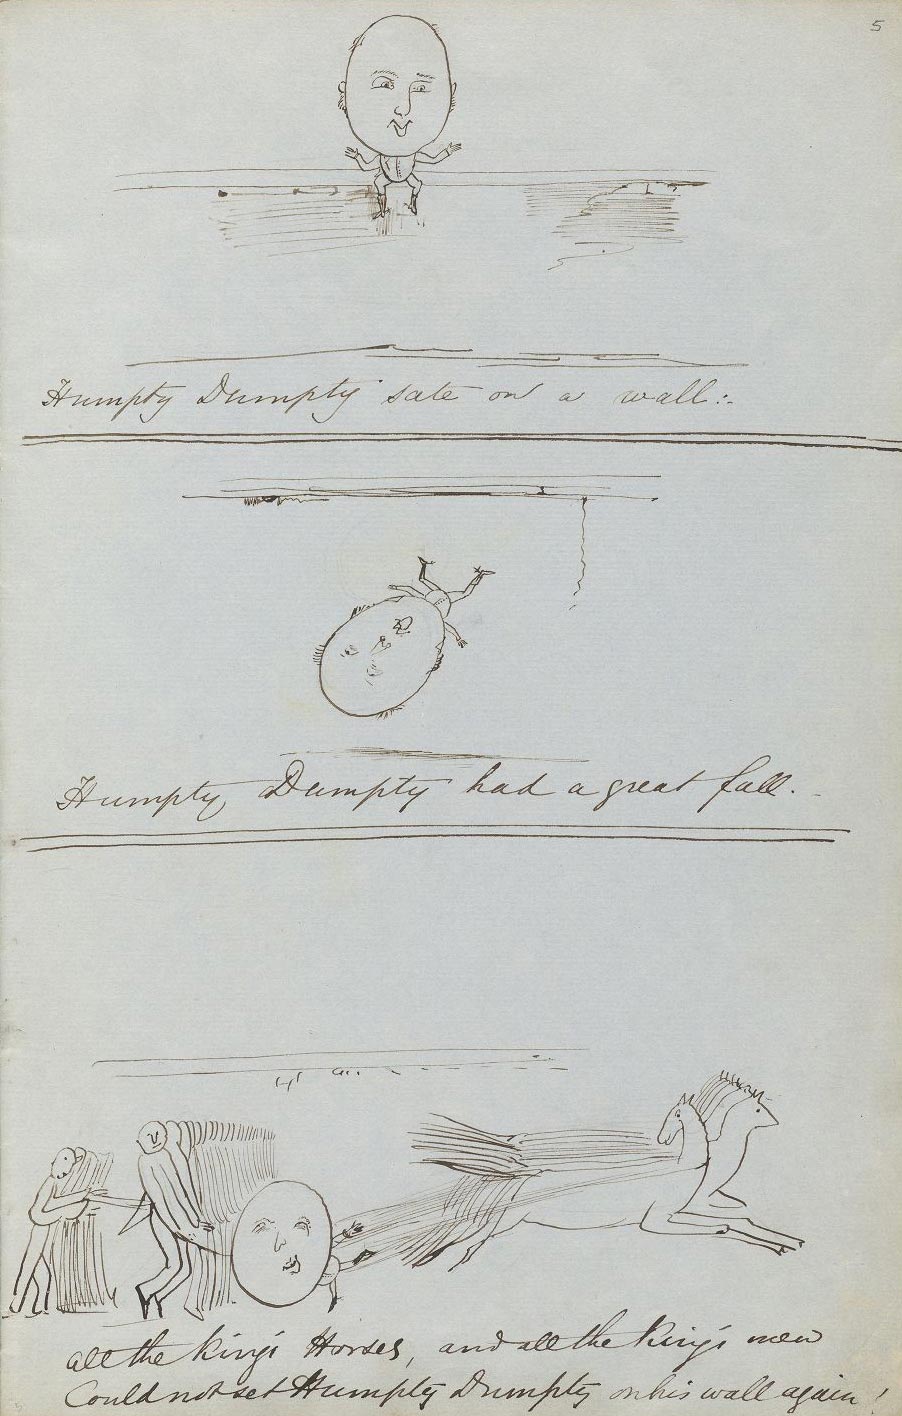 5
Humpty Dumpty sate on a wall:-
Humpty Dumpty had a great fall.
all the king's Horses, and all the king's men
Could not set Humpty Dumpty on his wall again!